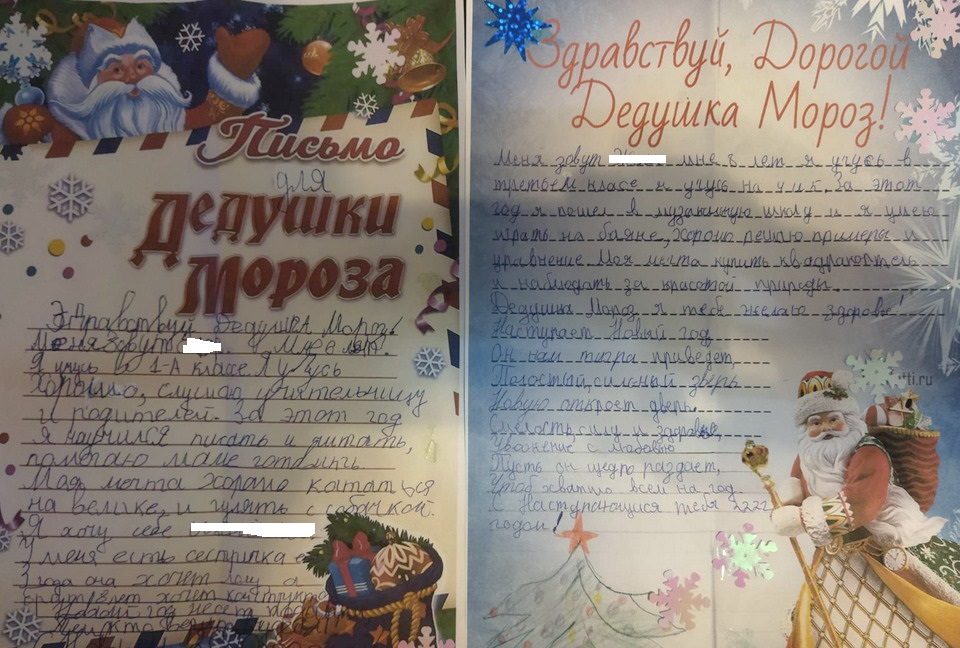 Письмо
для
Дедушки
Мороза
Здравствуй Дедушка Мороз!
Меня зовут
Я учусь во 1-А классе. Я учусь
хорошо, слушаю учительницу
и родителей. За этот год
я научился писать и читать,
помогаю маме готовить.
Моя мечта хорошо кататься
на велике, и гулять с собачкой.
Я хочу себе
У меня есть сестричка
3 года она хочет
хочет
Новый год несёт
Здравствуй, Дорогой
Дедушка Мороз!
Меня зовут мне 8 лет я учусь в
третьем класе и учусь на За этот
год я пошел в музакальную школу и я умею
играть на баяне, хорошо решаю примеры и
уравнение Моя мечта купить квадракоптель
и наблюдать за красотой природы.
Дедушка Мороз я тебе желаю здоровья!
Наступает Новый год
Он нам тигра приведет,
Полостый, сильный зверь
Новую откроет дверь.
Смелость, силу и здоровье,
Уважение с любовью
Пусть он щедро раздает,
Чтоб хватило всем на год
С Наступающися тебя 2222
годом!
ti.ru